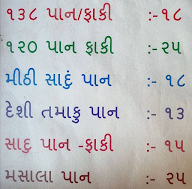 ૧૩૮ પાન/ફાકી :-૧૮
૧૨૦ પાન ફાકી :-૨૫
મીઠી સાદું પાન :- ૧૮
દેશી તમાકુ પાન :- ૧૩
સાદુ પાન -ફાકી :- ૧૫
મસાલા પાન :- ૨૫